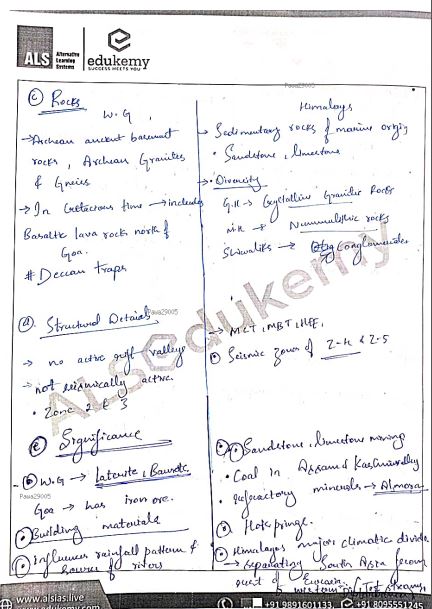 ALS
Alternative
Learning
Systems
edukemy
SUCCESS MEETS YOU
Pawa29005
(c) Rocks
W.G,
→ Archean ancient basement
rocks, Archean Granites
& Gneies
→ In Cretaceous time → includes
Basaltic lava rocks north of
Goa.
# Deccan traps
Himalays
→ Sedimentary rocks of marine origin
• Sandstone, limestone
→ Diversity
G.H → Crystalline Granitic Rocks
M.H → Nummulithic rocks
Shivaliks → Conglomerates
ALS edukemy
(d). Structural Details
Pawa29005
→ no active rift valleys
→ not seismically active.
• Zone 2 & 3
→ MCT, MBT, HFF.
Seismic zones of Z-4 & Z-5
(e) Significance
W.G → Laterite, Bauxite
Pawa29005
Goa → has iron ore.
Building materials
Influences rainfall pattern &
Source of rivers
Sandstone, limestone mining
• Coal in Assam & Kashmir valley
• refractory minerals → Almora
Hotspringe.
Himalayas major climatic divide
→ separating South Asia from
rest of Eurasia.
www.alsias.live
+91 9891601133,
+91 8095551245